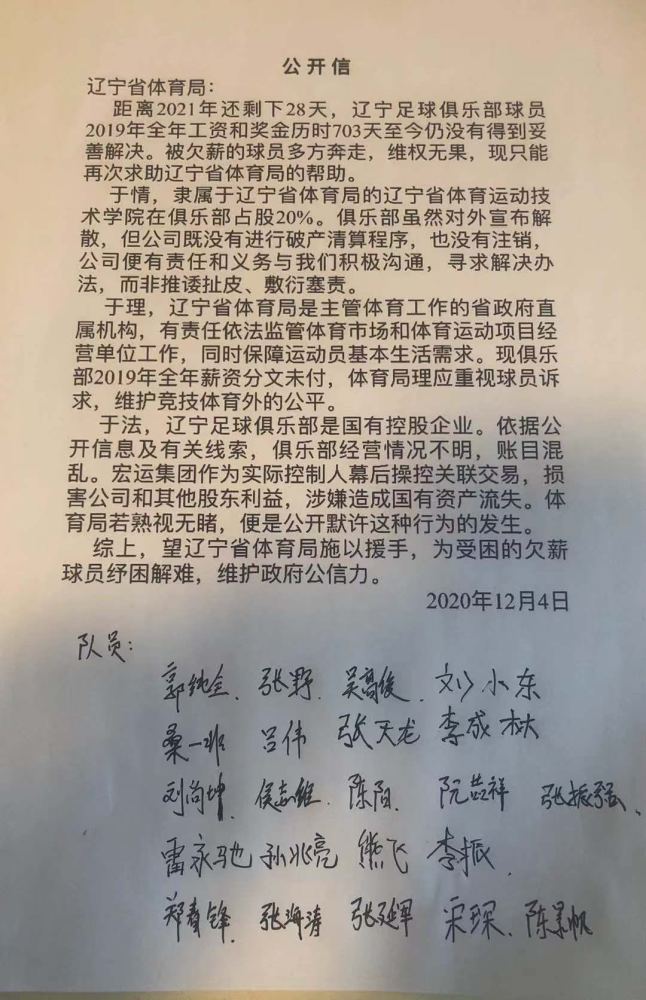 公开信
辽宁省体育局：
距离2021年还剩下28天，辽宁足球俱乐部球员
2019年全年工资和奖金历时703天至今仍没有得到妥
善解决。被欠薪的球员多方奔走，维权无果，现只能
再次求助辽宁省体育局的帮助。
于情，隶属于辽宁省体育局的辽宁省体育运动技
术学院在俱乐部占股20%。俱乐部虽然对外宣布解
散，但公司既没有进行破产清算程序，也没有注销，
公司便有责任和义务与我们积极沟通，寻求解决办
法，而非推诿扯皮、敷衍塞责。
于理，辽宁省体育局是主管体育工作的省政府直
属机构，有责任依法监管体育市场和体育运动项目经
营单位工作，同时保障运动员基本生活需求。现俱乐
部2019年全年薪资分文未付，体育局理应重视球员诉
求，维护竞技体育外的公平。
于法，辽宁足球俱乐部是国有控股企业。依据公
开信息及有关线索，俱乐部经营情况不明，账目混
乱。宏运集团作为实际控制人幕后操控关联交易，损
害公司和其他股东利益，涉嫌造成国有资产流失。体
育局若熟视无睹，便是公开默许这种行为的发生。
综上，望辽宁省体育局施以援手，为受困的欠薪
球员纾困解难，维护政府公信力。
2020年12月4日
队员：
张野、吴高俊、刘小东
桑一非 吕伟 张天龙 李成林
刘尚坤、侯志维、陈阳、张振强、
雷永驰 孙兆亮 熊飞 李振、
郑春锋、张海涛 张延军 宋琛、陈景帆